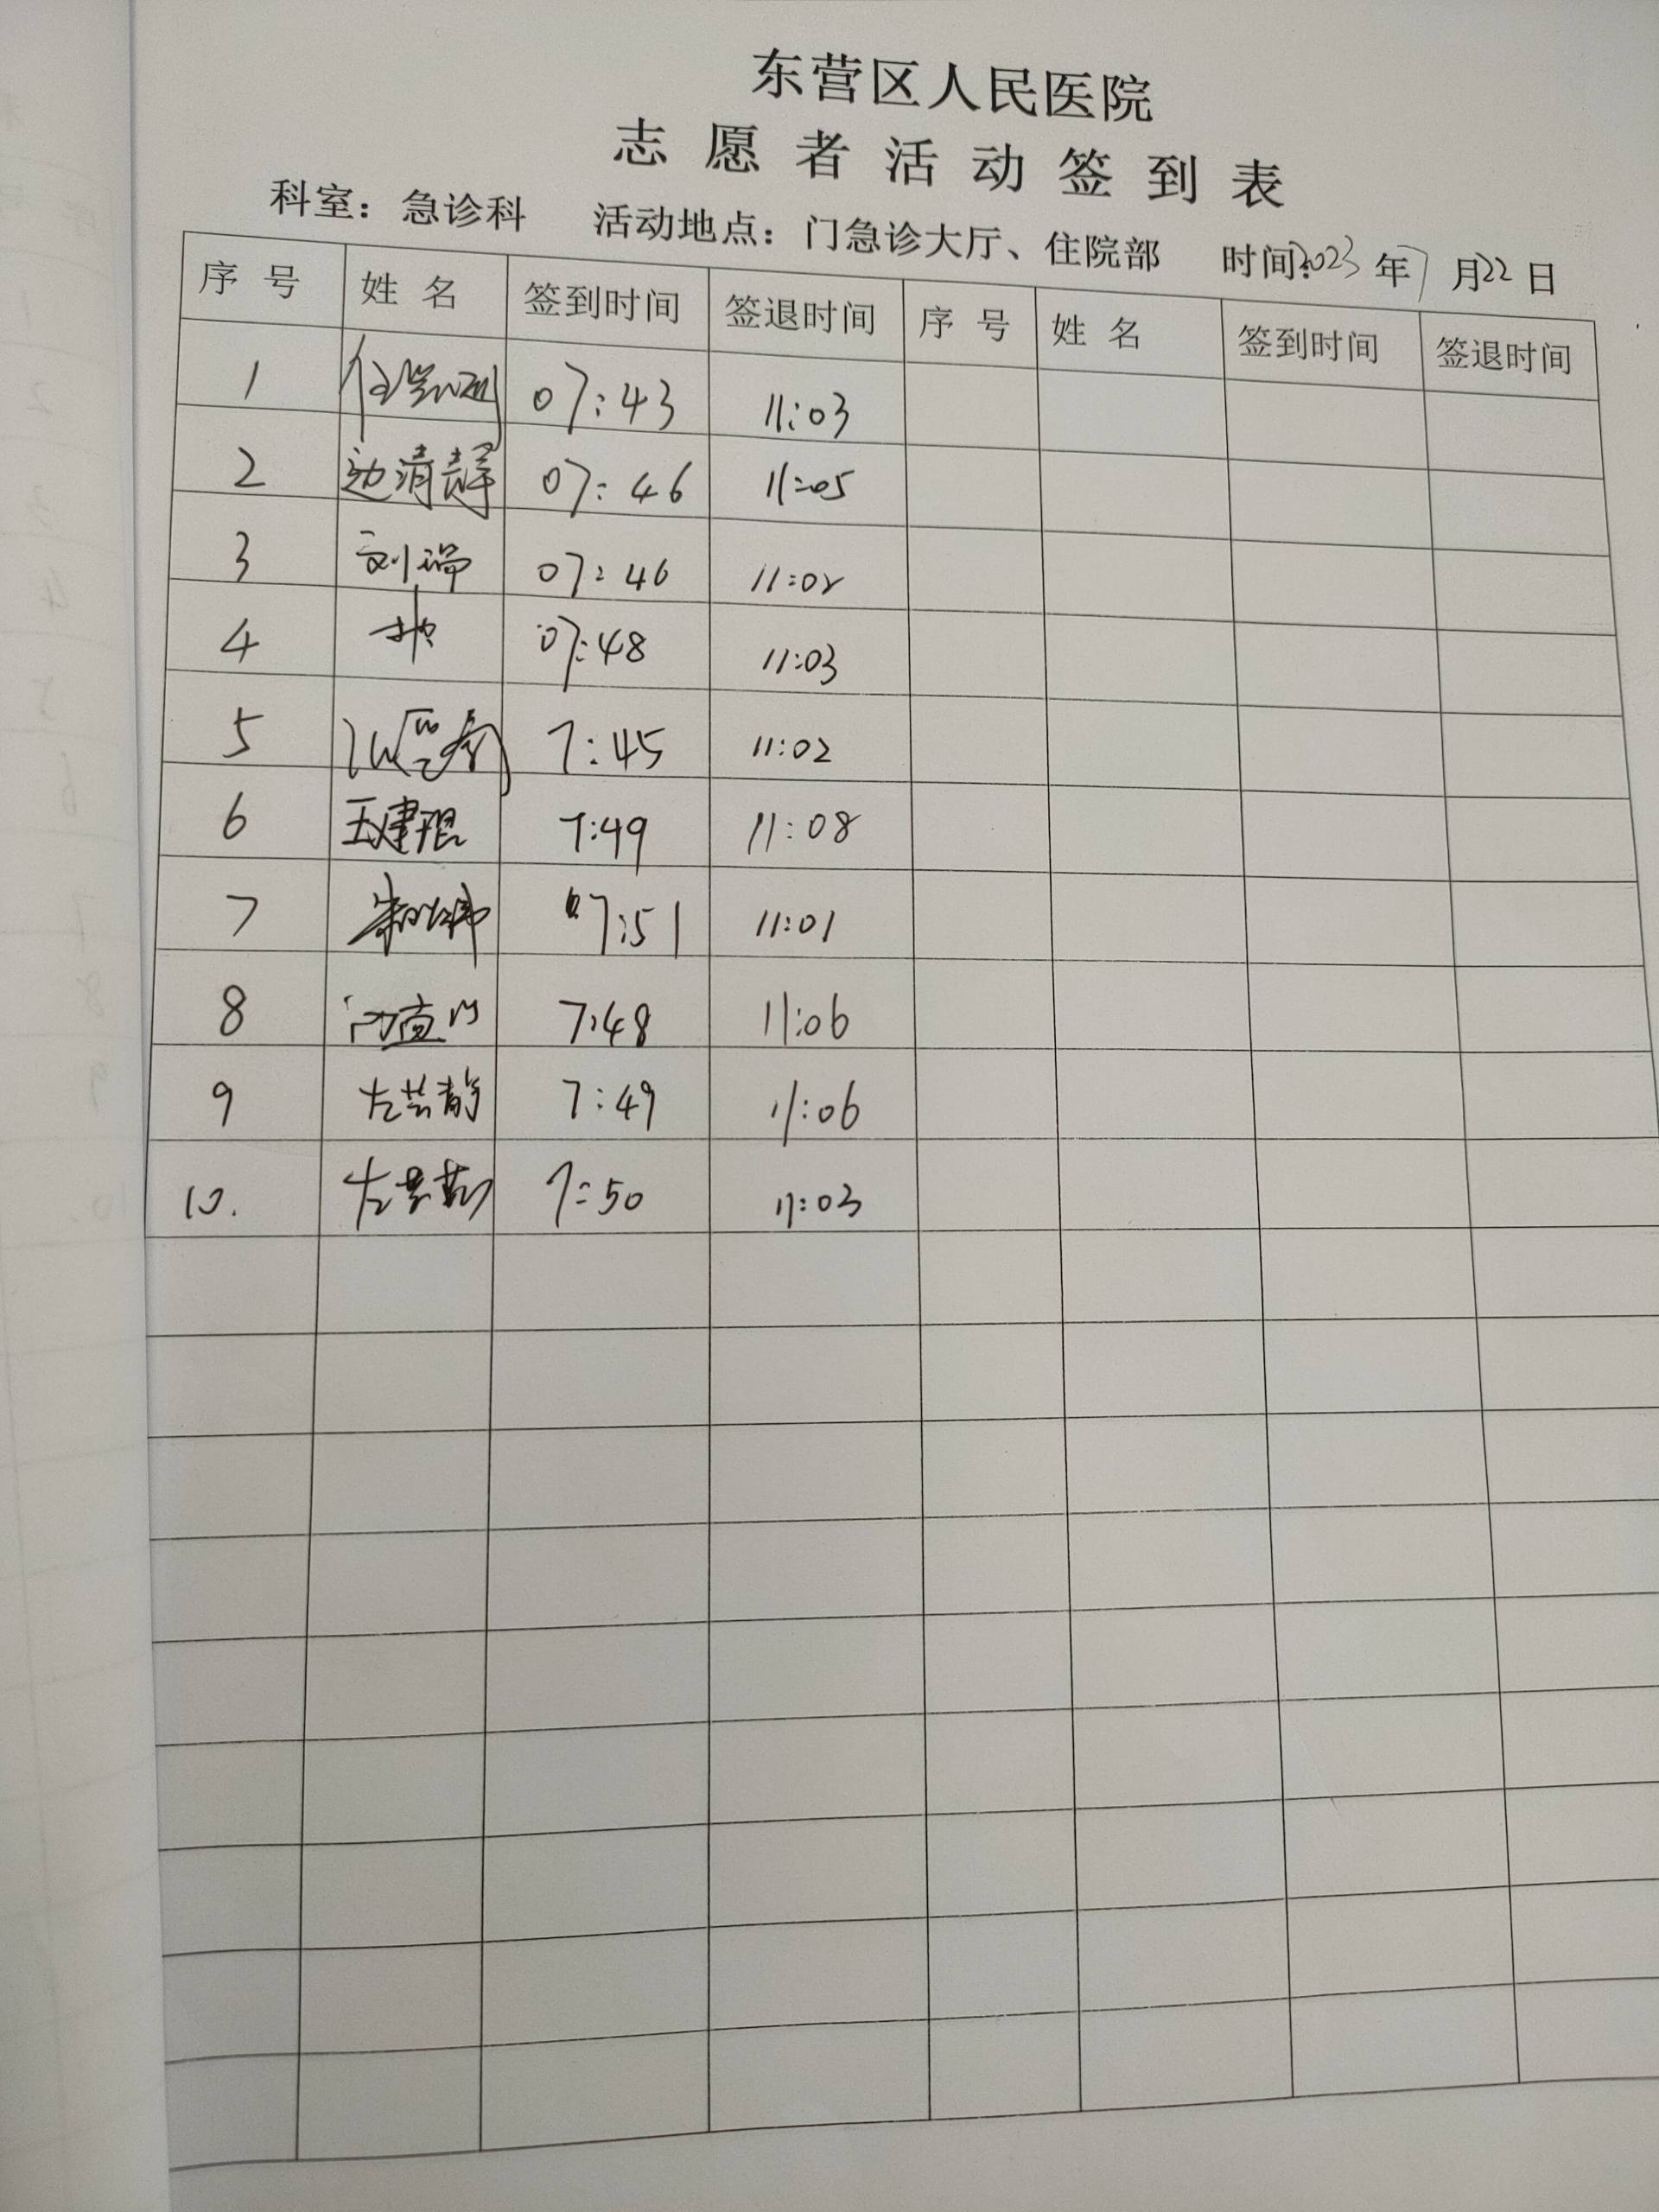 东营区人民医院
志愿者活动签到表
科室：急诊科 活动地点：门急诊大厅、住院部 时间：2023年7月22日
序号 姓名 签到时间 签退时间 序号 姓名 签到时间 签退时间
1 07:43 11:03
2 边清 07:46 11:05
3 刘瑞 07:46 11:02
4 07:48 11:03
5 7:45 11:02
6 王建琨 7:49 11:08
7 07:51 11:01
8 7:48 11:06
9 左芸静 7:49 11:06
10. 左 7:50 11:03